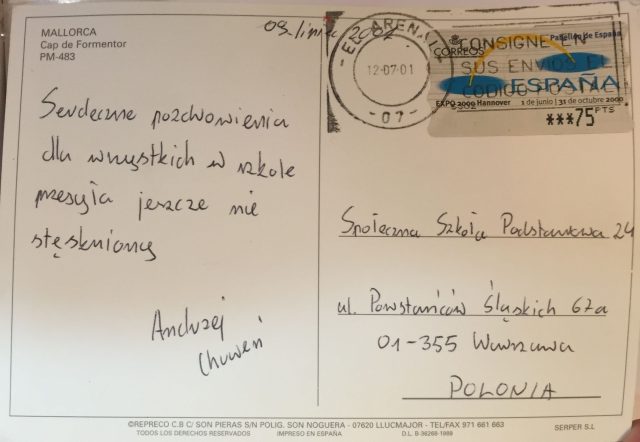 MALLORCA
Cap de Formentor
PM-483
09. lipiec 2001
EL ARENAL
12-07-01
-07-
CORREOS
CONSIGNE EN
SUS ENVIOS EL
CODIGO POSTAL
Pabellón de España
ESPAÑA
EXPO 2000 Hannover 1 de junio | 31 de octubre 2000
***75 PTS
Serdeczne pozdrowienia
dla wszystkich w szkole
przesyła jeszcze nie
stęskniony
Andrzej
Społeczna Szkoła Podstawowa 24
ul. Powstańców Śląskich 67a
01-355 Warszawa
POLONIA
©REPRECO C.B C/ SON PIERAS S/N POLIG. SON NOGUERA - 07620 LLUCMAJOR - TEL/FAX 971 661 663
TODOS LOS DERECHOS RESERVADOS IMPRESO EN ESPAÑA D.L. B-36268-1989 SERPER S.L